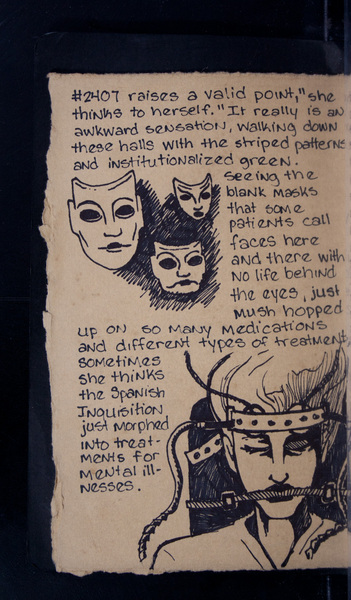 #2407 raises a valid point," she
thinks to herself. "It really is an
awkward sensation, walking down
these halls with the striped patterns
and institutionalized green.
Seeing the
blank masks
that some
patients call
faces here
and there with
no life behind
the eyes, just
mush hopped
up on so many medications
and different types of treatment
sometimes
she thinks
the Spanish
Inquisition
just morphed
into treat-
ments for
mental ill-
nesses.